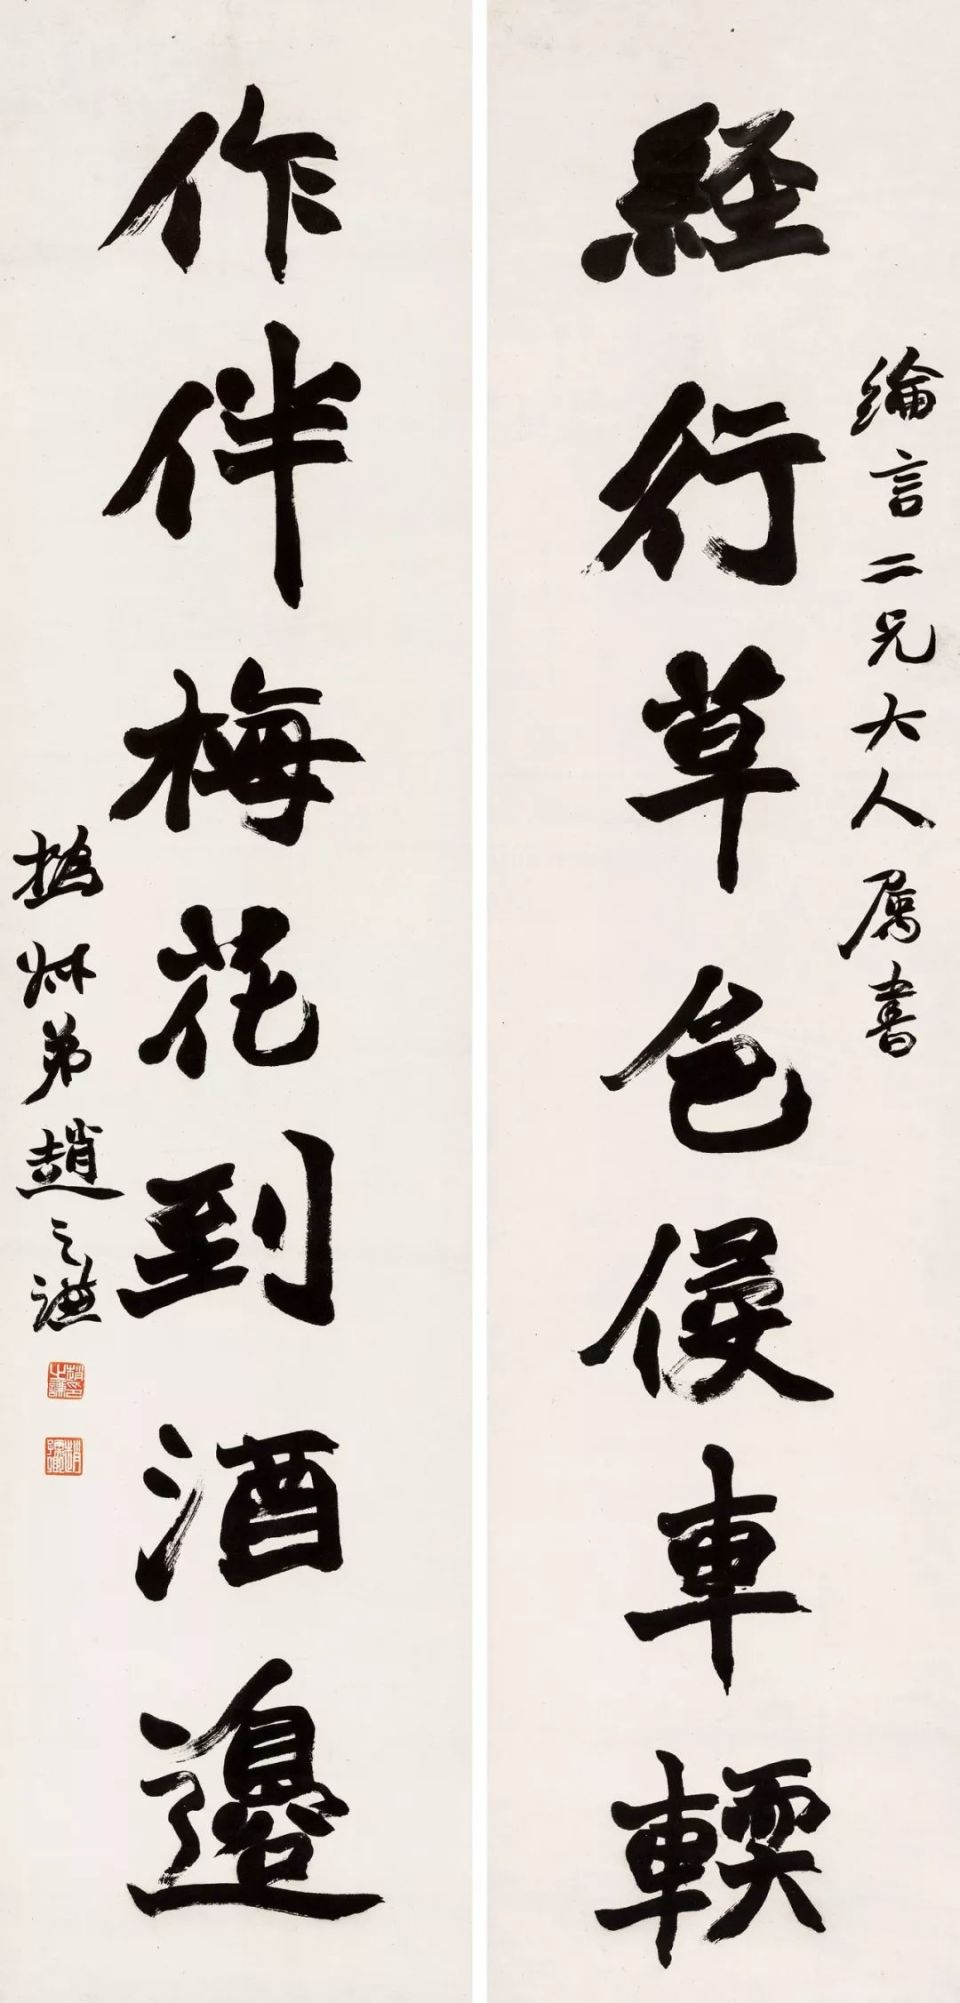 綸言二兄大人属書
經行草色侵車輭
作伴梅花到酒邊
撝叔弟趙之謙